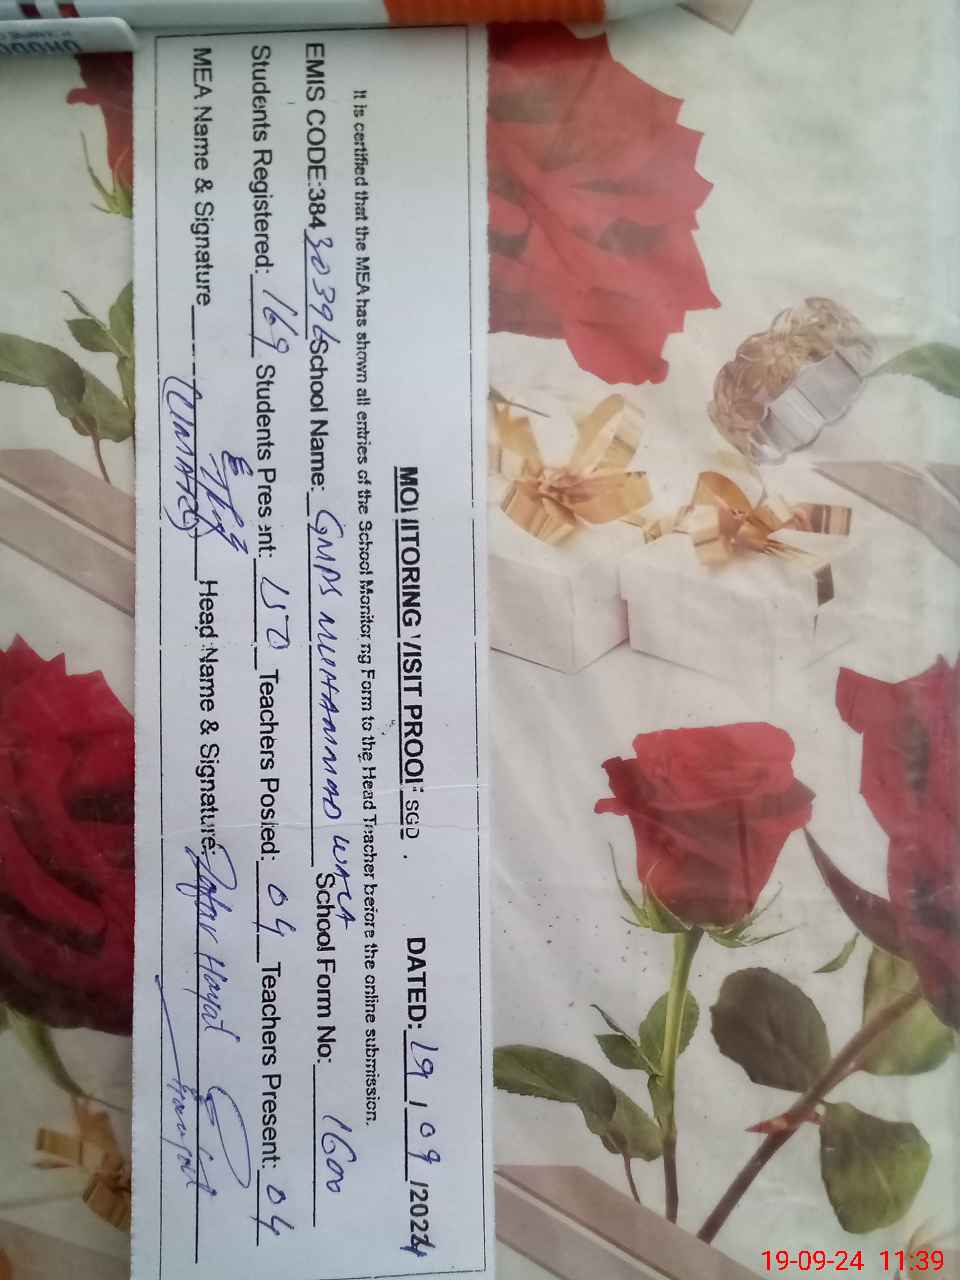 MONITORING VISIT PROOF SGD. DATED: 19 / 09 /2024
It is certified that the MEA has shown all entries of the School Monitoring Form to the Head Teacher before the online submission.
EMIS CODE:38430396 School Name: GMPS MUHAMMAD WALA School Form No: 1600
Students Registered: 169 Students Present: 150 Teachers Posted: 04 Teachers Present: 04
MEA Name & Signature Head Name & Signature: Zafar Hayat
19-09-24 11:39